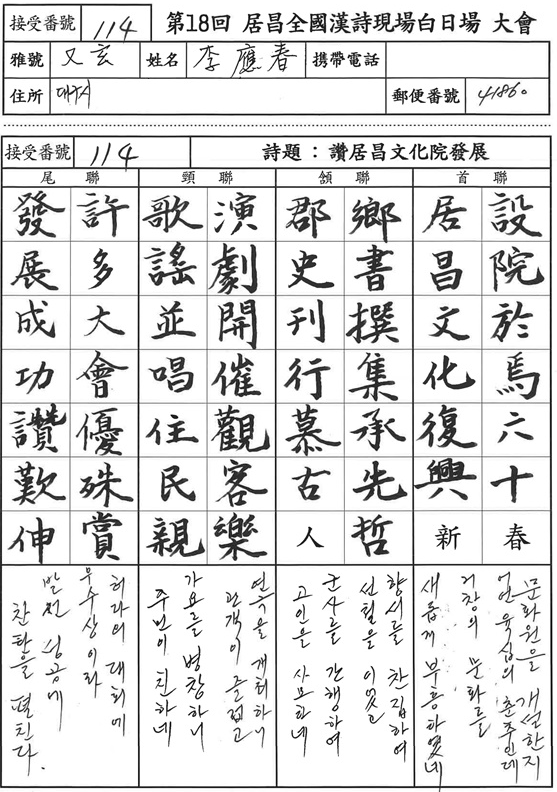 接受番號 114 第18回 居昌全國漢詩現場白日場 大會
雅號 又玄 姓名 李應春 携帶電話
住所 대구시 郵便番號 41860
接受番號 114 詩題 : 讚居昌文化院發展
首聯
設院於焉六十春
居昌文化復興新
문화원을 개설한지
어언 육십의 춘추인데
거창의 문화를
새롭게 부흥하였네
頷聯
鄕書撰集承先哲
郡史刊行慕古人
향서를 찬집하여
선철을 이었고
군사를 간행하여
고인을 사모하네
頸聯
演劇開催觀客樂
歌謠並唱住民親
연극을 개최하니
관객이 즐겁고
가요를 병창하니
주민이 친하네
尾聯
許多大會優殊賞
發展成功讚歎伸
허다의 대회에
우수상이라
발전 성공에
찬탄을 펼친다.